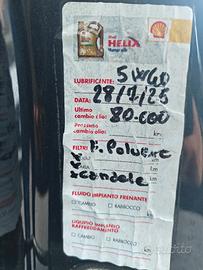 Shell
HELIX
Motor Oils
LUBRIFICANTE: 5W40
DATA: 28/7/25
Ultimo
cambio olio: 80.000 km
Prossimo
cambio olio: km
FILTRI F. Poluene
Scandele
FLUIDO IMPIANTO FRENANTE
CAMBIO RABBOCCO
LIQUIDO IMPIANTO
RAFFREDDAMENTO
CAMBIO RABBOCCO